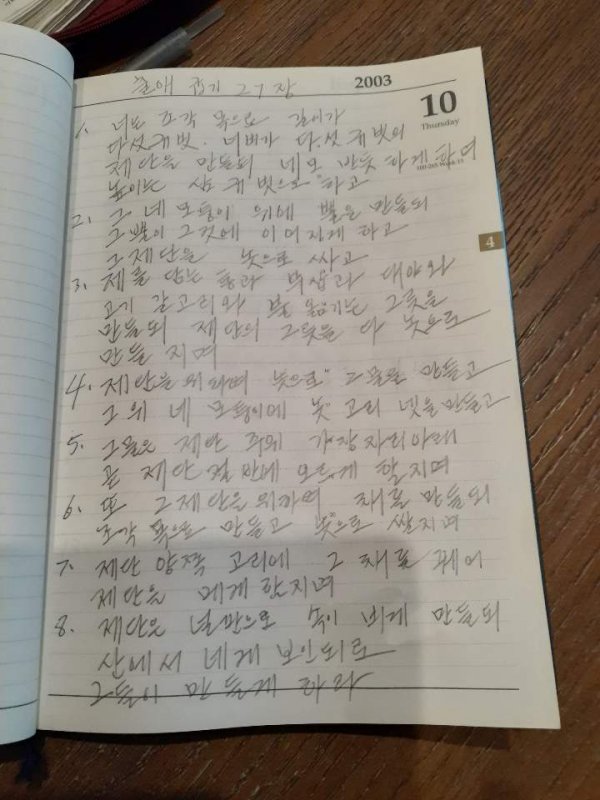 출애굽기 27장
2003
10
Thursday
4
1. 너는 조각 목으로 길이가
다섯 규빗. 너비가 다섯 규빗의
제단을 만들되 네모 반듯하게 하며
높이는 삼 규빗으로 하고
2. 그 네 모퉁이 위에 뿔을 만들되
그 뿔이 그것에 이어지게 하고
그 제단을 놋으로 싸고
3. 재를 담는 통과 부삽과 대야와
고기 갈고리와 불 옮기는 그릇을
만들되 제단의 그릇을 다 놋으로
만들 지며
4. 제단을 위하여 놋으로 그물을 만들고
그 위 네 모퉁이에 놋 고리 넷을 만들고
5. 그물은 제단 주위 가장자리 아래
곧 제단 절반에 오르게 할지며
6. 또 그 제단을 위하여 채를 만들되
조각 목으로 만들고 놋으로 쌀지며
7. 제단 양쪽 고리에 그 채를 꿰어
제단을 메게 할지며
8. 제단은 널판으로 속이 비게 만들되
산에서 네게 보인대로
그들이 만들게 하라